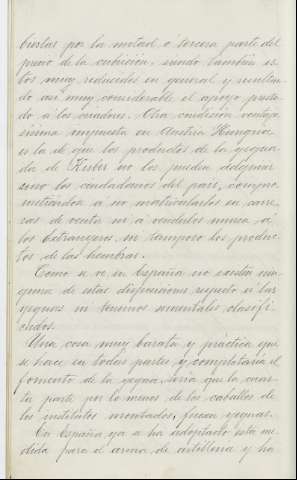 biertas por la mitad ó tercera parte del
precio de la cubrición, siendo tambien es-
tos muy reducidos en general y resultan-
do asi muy considerable el apoyo presta-
do a los criadores. Otra condición ventajo-
sisima impuesta en Austria Hungria
es la de que los productos de la yegua-
da de Kisber no los puedan adquirir
sino los ciudadanos del pais, compro-
metiendose á no matricularlos en carre-
ras de venta ni á venderlos nunca á
los extranjeros, ni tampoco los produc-
tos de las hembras.
Como se ve en España no existe nin-
guna de estas disposiciones respecto á las
yeguas ni tenemos sementales clasifi-
cados.
Una cosa muy barata y práctica que
se hace en todas partes y completaria el
fomento de la yegua, seria que la cuar-
ta parte por lo menos de los caballos de
los institutos montados, fuesen yeguas.
En España ya se ha adoptado esta me-
dida para el arma de artilleria y ha